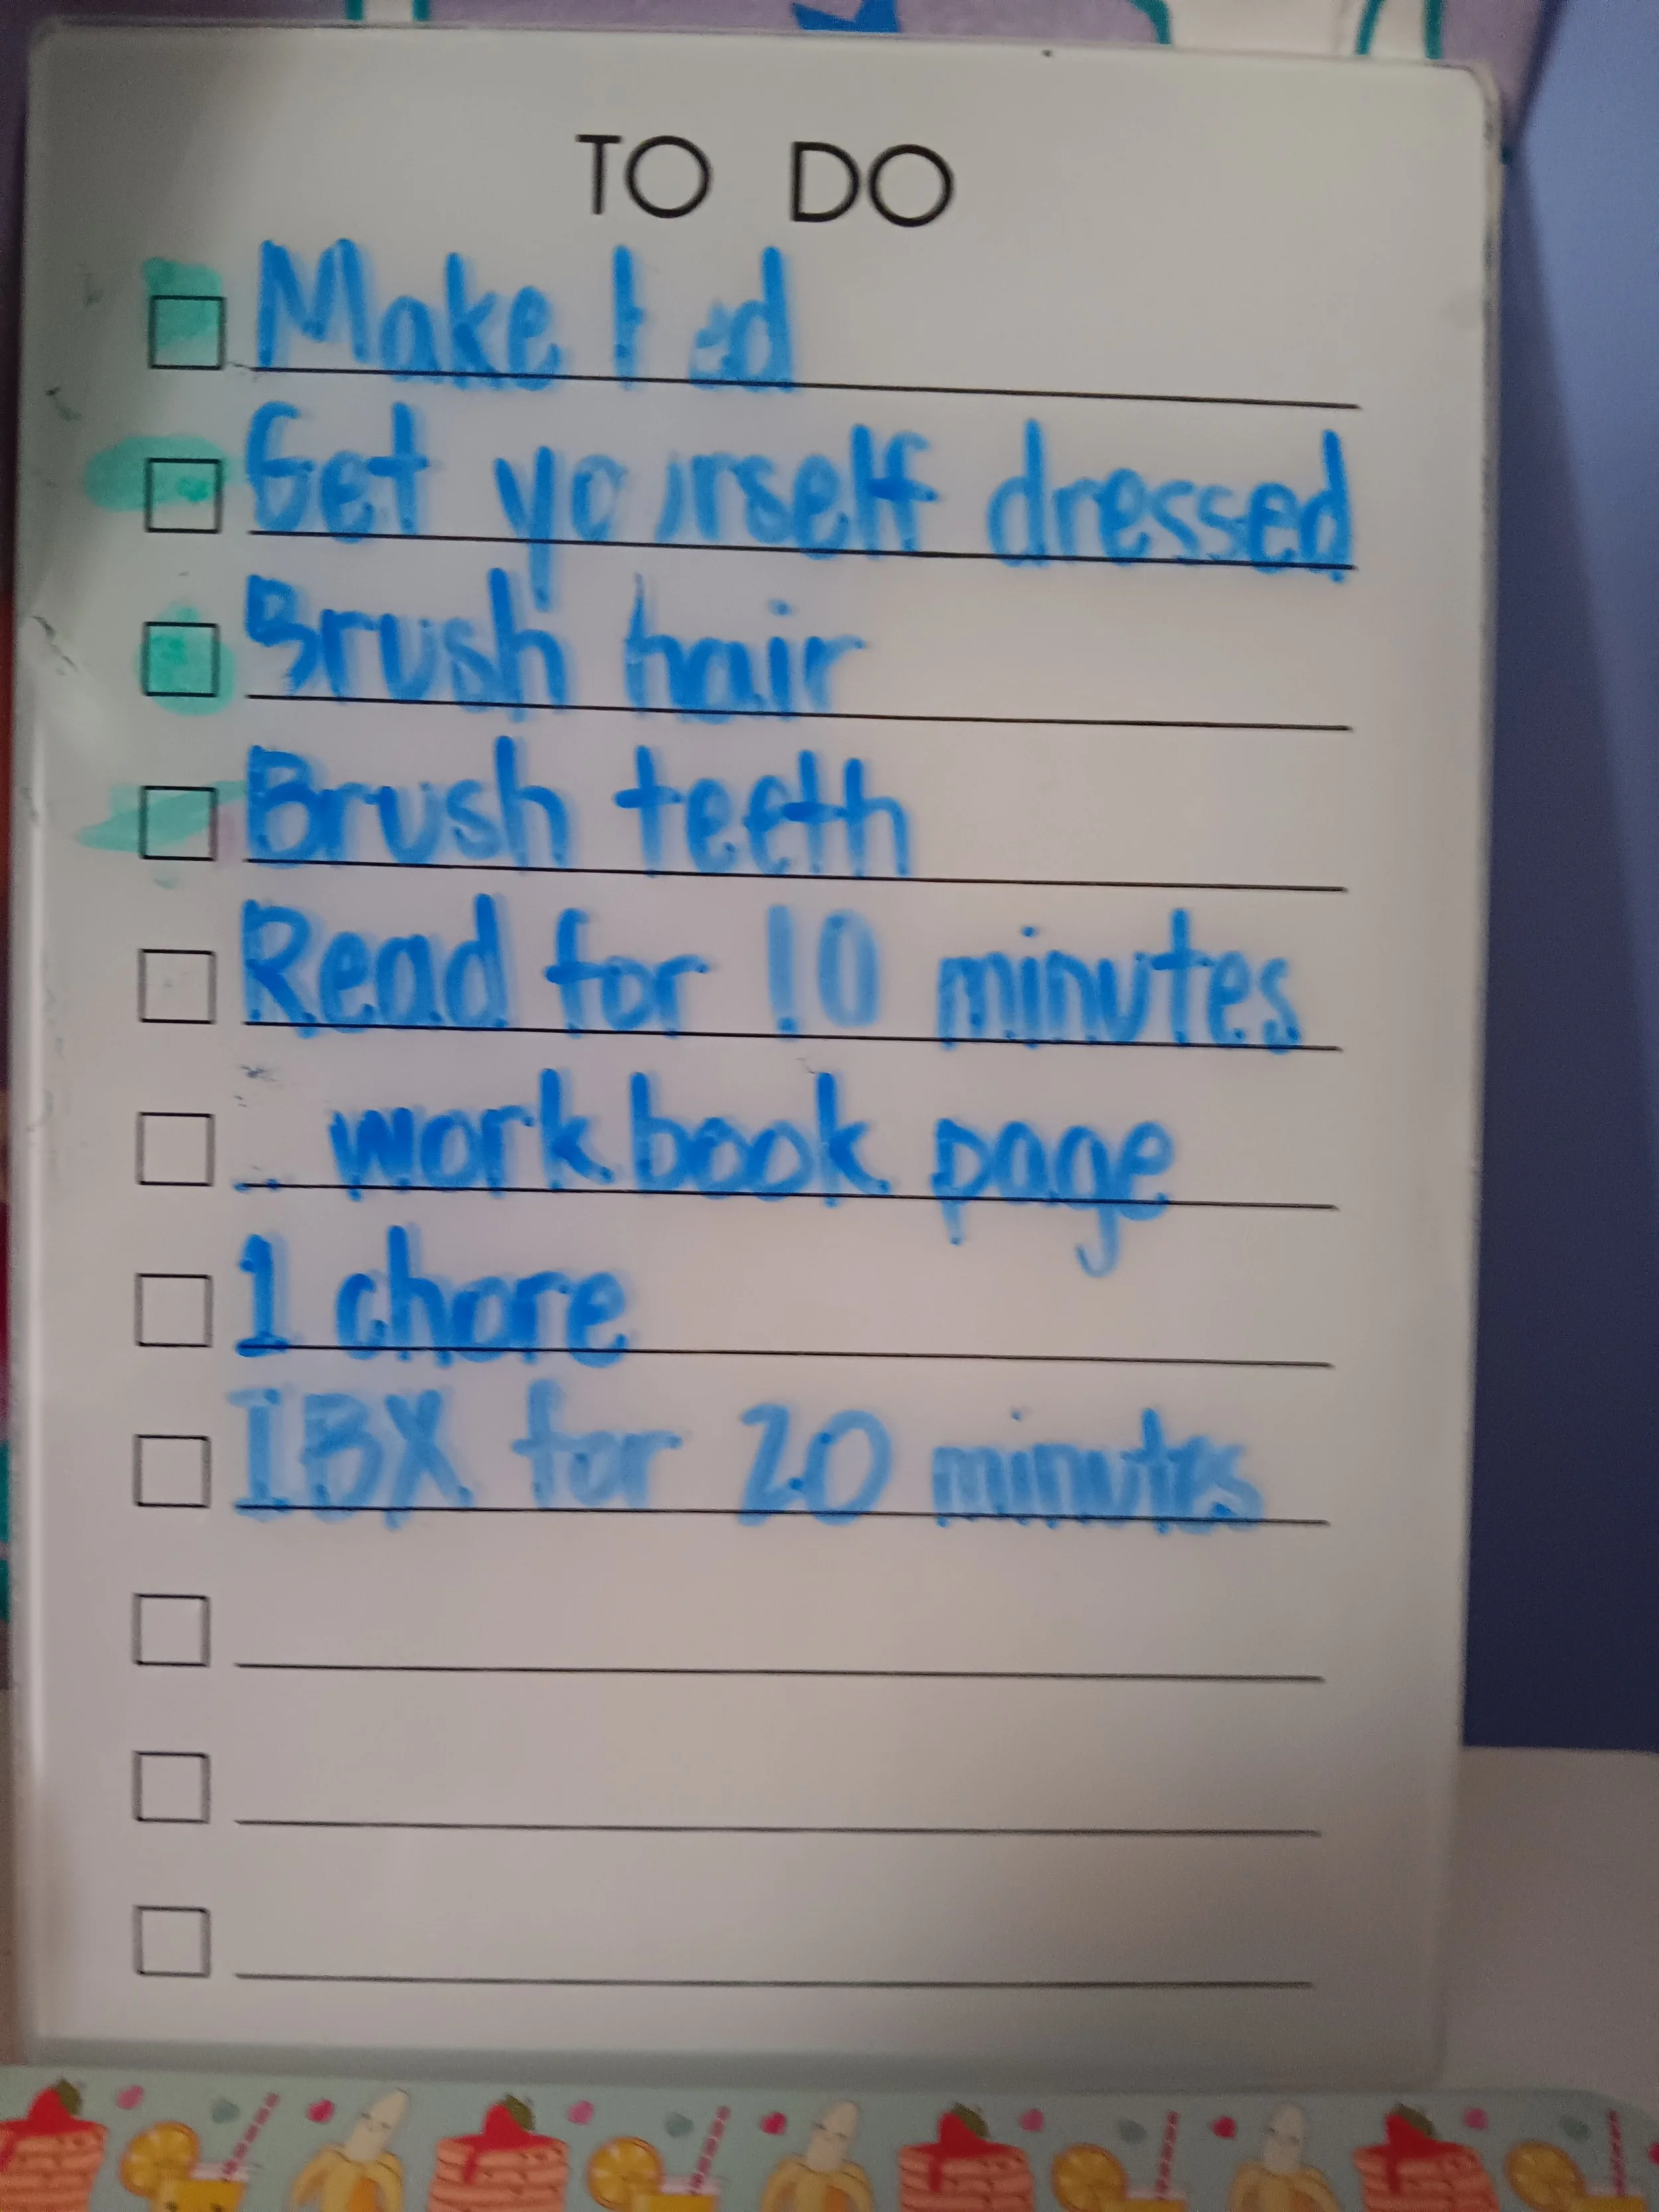 TO DO
Make bed
Get yourself dressed
Brush hair
Brush teeth
Read for 10 minutes
workbook page
1 chore
IBX for 20 minutes